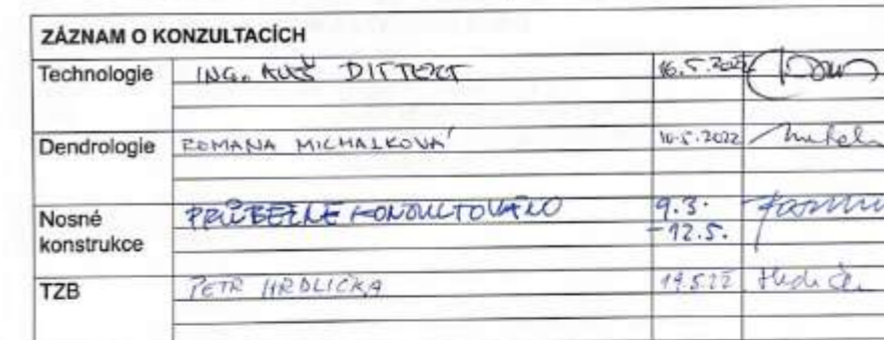 ZÁZNAM O KONZULTACÍCH
Technologie ING. ALEŠ DITTERT 16.5.2022
Dendrologie ROMANA MICHALKOVÁ 16.5.2022
Nosné konstrukce PRŮBĚŽNĚ KONZULTOVÁNO 9.3.
-12.5.
TZB PETR HRDLIČKA 19.5.22